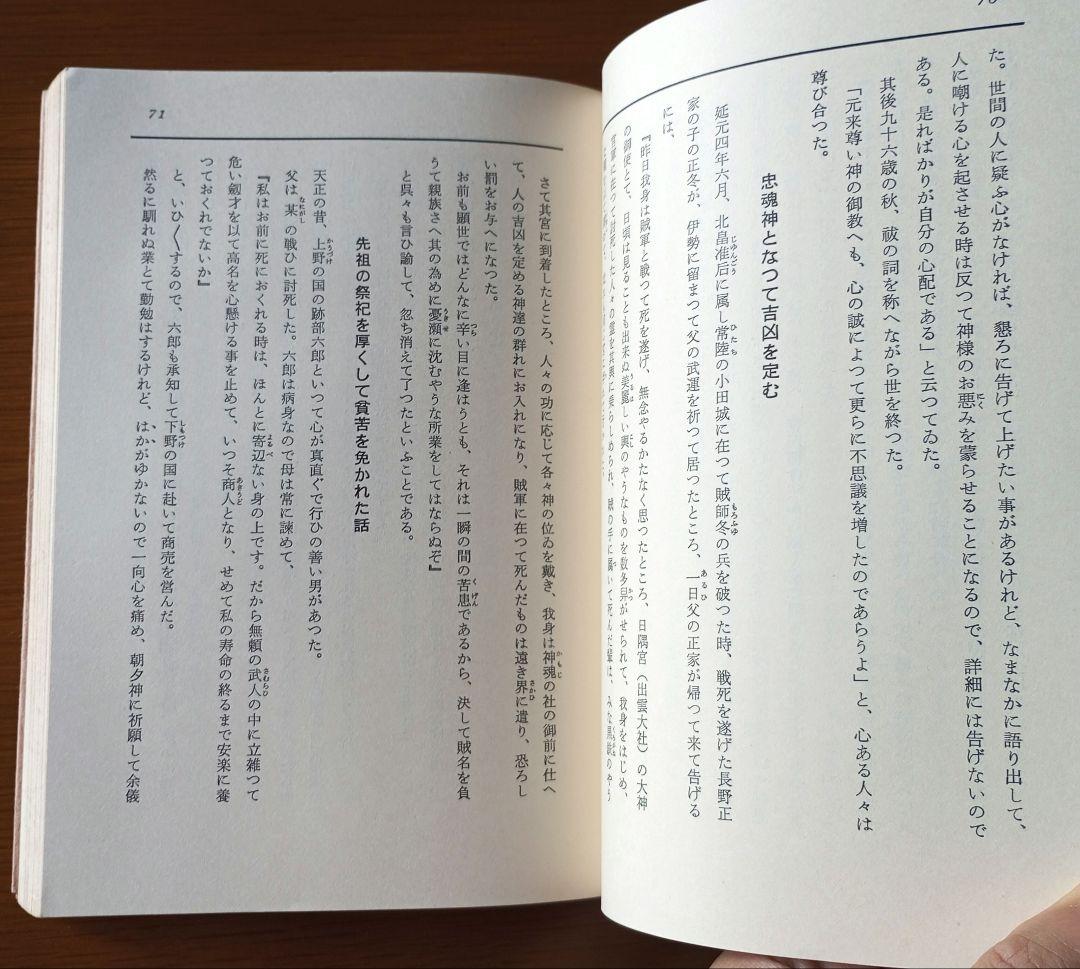 た。世間の人に疑ふ心がなければ、懇ろに告げて上げたい事があるけれど、なまなかに語り出して、
人に嘲ける心を起させる時は反つて神様のお悪みを蒙らせることになるので、詳細には告げないので
ある。是ればかりが自分の心配である」と云つてゐた。
其後九十六歳の秋、祓の詞を称へながら世を終つた。
「元来尊い神の御教へも、心の誠によつて更らに不思議を増したのであらうよ」と、心ある人々は
尊び合つた。
忠魂神となつて吉凶を定む
延元四年六月、北畠准后に属し常陸の小田城に在つて賊師冬の兵を破つた時、戦死を遂げた長野正
家の子の正冬が、伊勢に留まつて父の武運を祈つて居つたところ、一日父の正家が帰つて来て告げる
には、
『昨日我身は賊軍と戦つて死を遂げ、無念やるかたなく思つたところ、日隅宮(出雲大社)の大神
の御使とて、日頃は見ることも出来ぬ美麗しい輿のやうなものを数多舁がせられて、我身をはじめ、
官軍に在つて討死した人々の霊を其輿に乗らしめられ、賊の手に属いて死んだ輩は、みな
のやう
71
さて其宮に到着したところ、人々の功に応じて各々神の位ゐを戴き、我身は神魂の社の御前に仕へ
て、人の吉凶を定める神達の群れにお入れになり、賊軍に在つて死んだものは遠き界に遣り、恐ろし
い罰をお与へになつた。
お前も顕世ではどんなに辛い目に逢はうとも、それは一瞬の間の苦患であるから、決して賊名を負
うて親族さへ其の為めに憂瀬に沈むやうな所業をしてはならぬぞ』
と呉々も言ひ諭して、忽ち消えて了つたといふことである。
先祖の祭祀を厚くして貧苦を免かれた話
天正の昔、上野の国の跡部六郎といつて心が真直ぐで行ひの善い男があつた。
父は、某の戦ひに討死した。六郎は病身なので母は常に諫めて、
『私はお前に死におくれる時は、ほんとに寄辺ない身の上です。だから無頼の武人の中に立雑つて
危い剱才を以て高名を心懸ける事を止めて、いつそ商人となり、せめて私の寿命の終るまで安楽に養
つておくれでないか』
と、いひ〱するので、六郎も承知して下野の国に赴いて商売を営んだ。
然るに馴れぬ業とて勤勉はするけれど、はかがゆかないので一向心を痛め、朝夕神に祈願して余儀